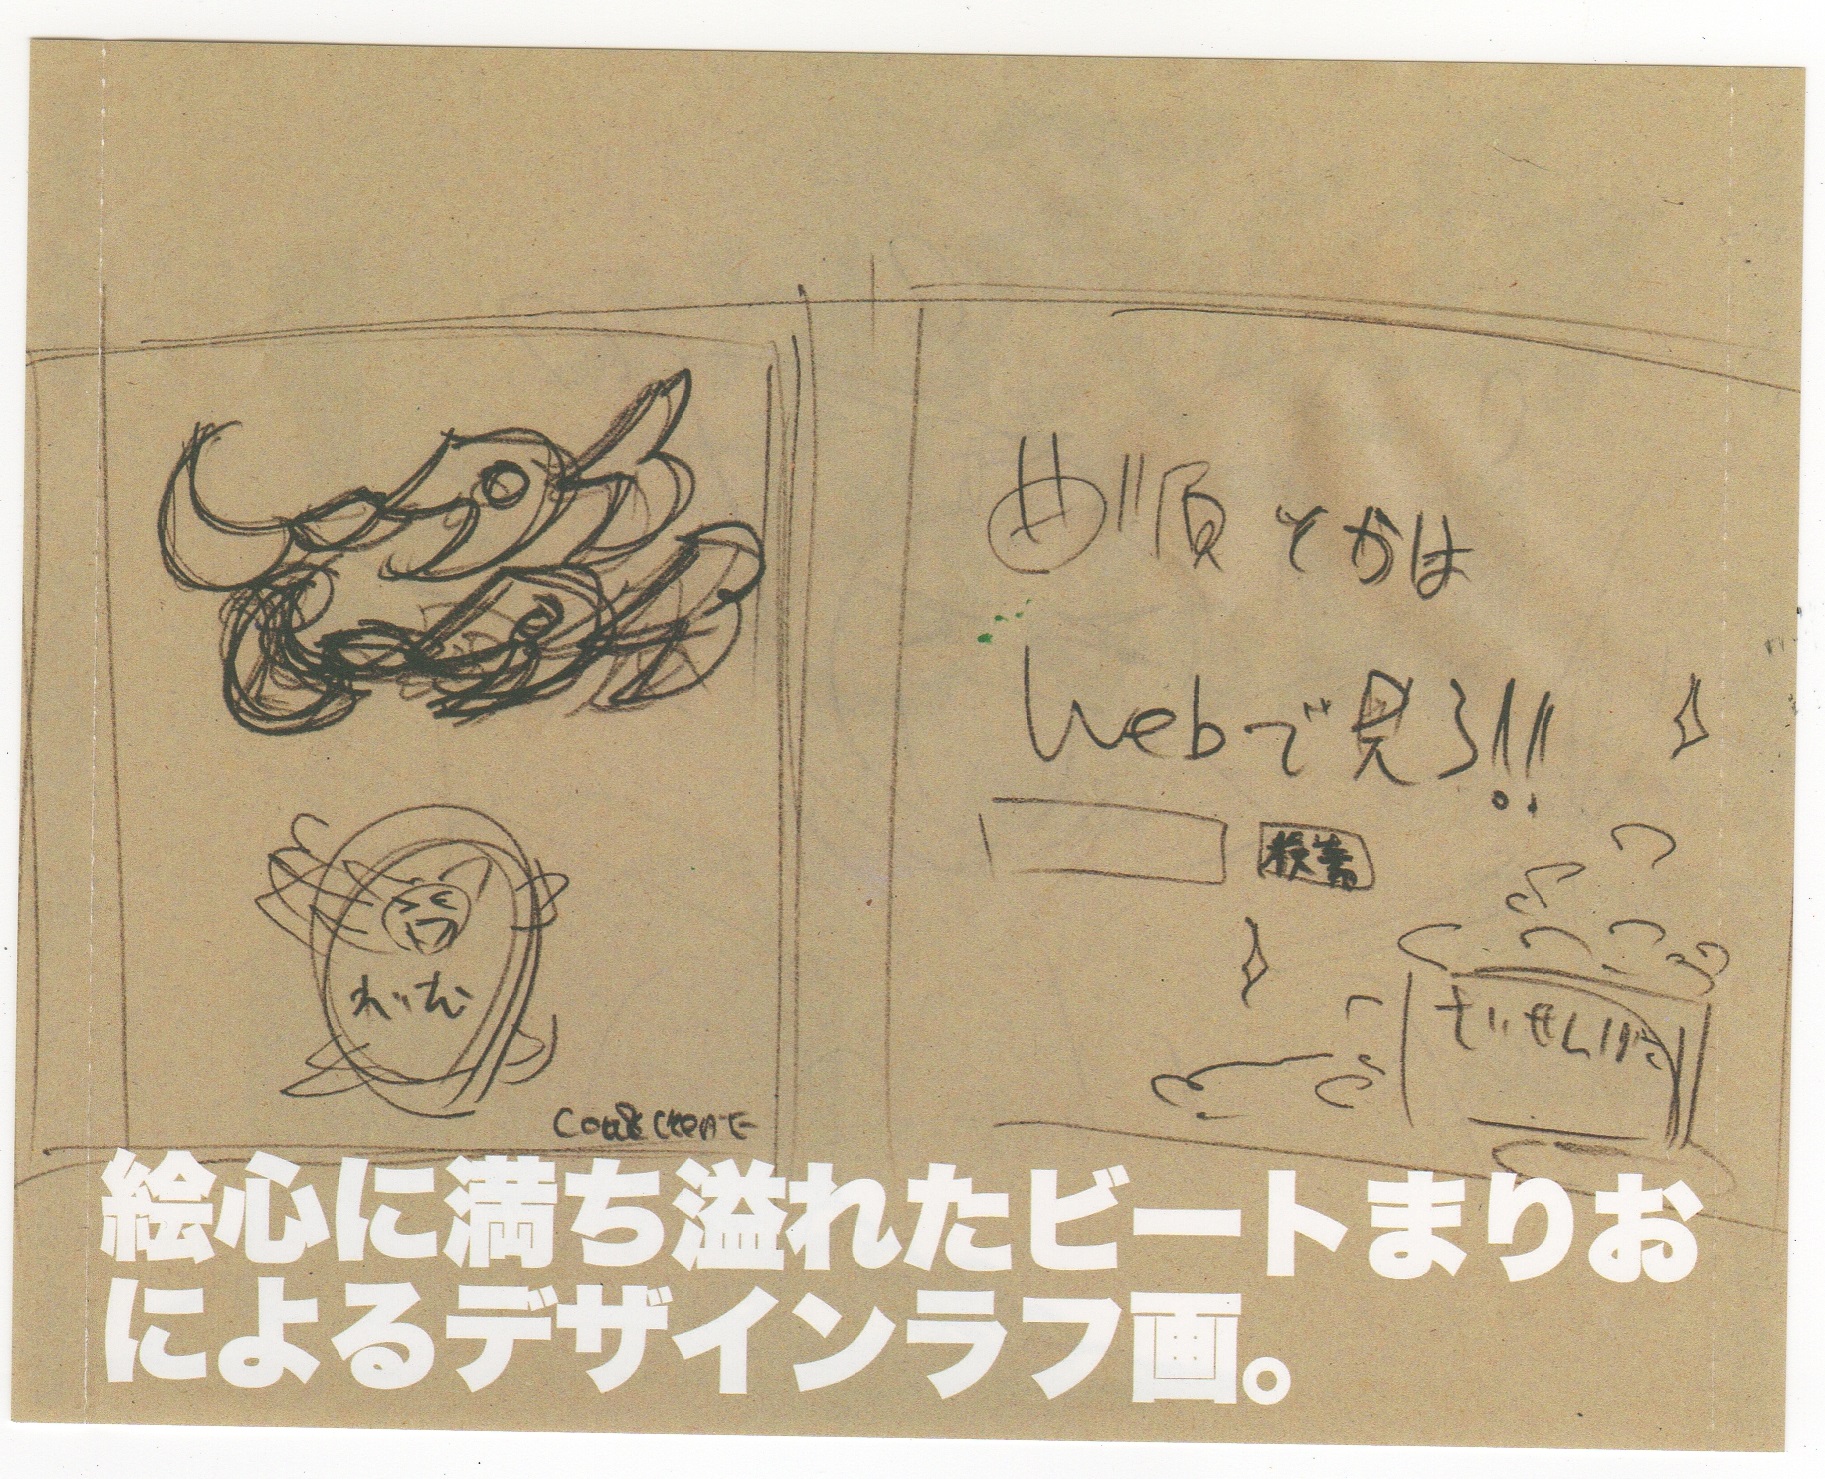 曲順とかは
Webで見ろ!!
検索
れいむ
さいせんばこ
COOL&CREATE
絵心に満ち溢れたビートまりお
によるデザインラフ画。